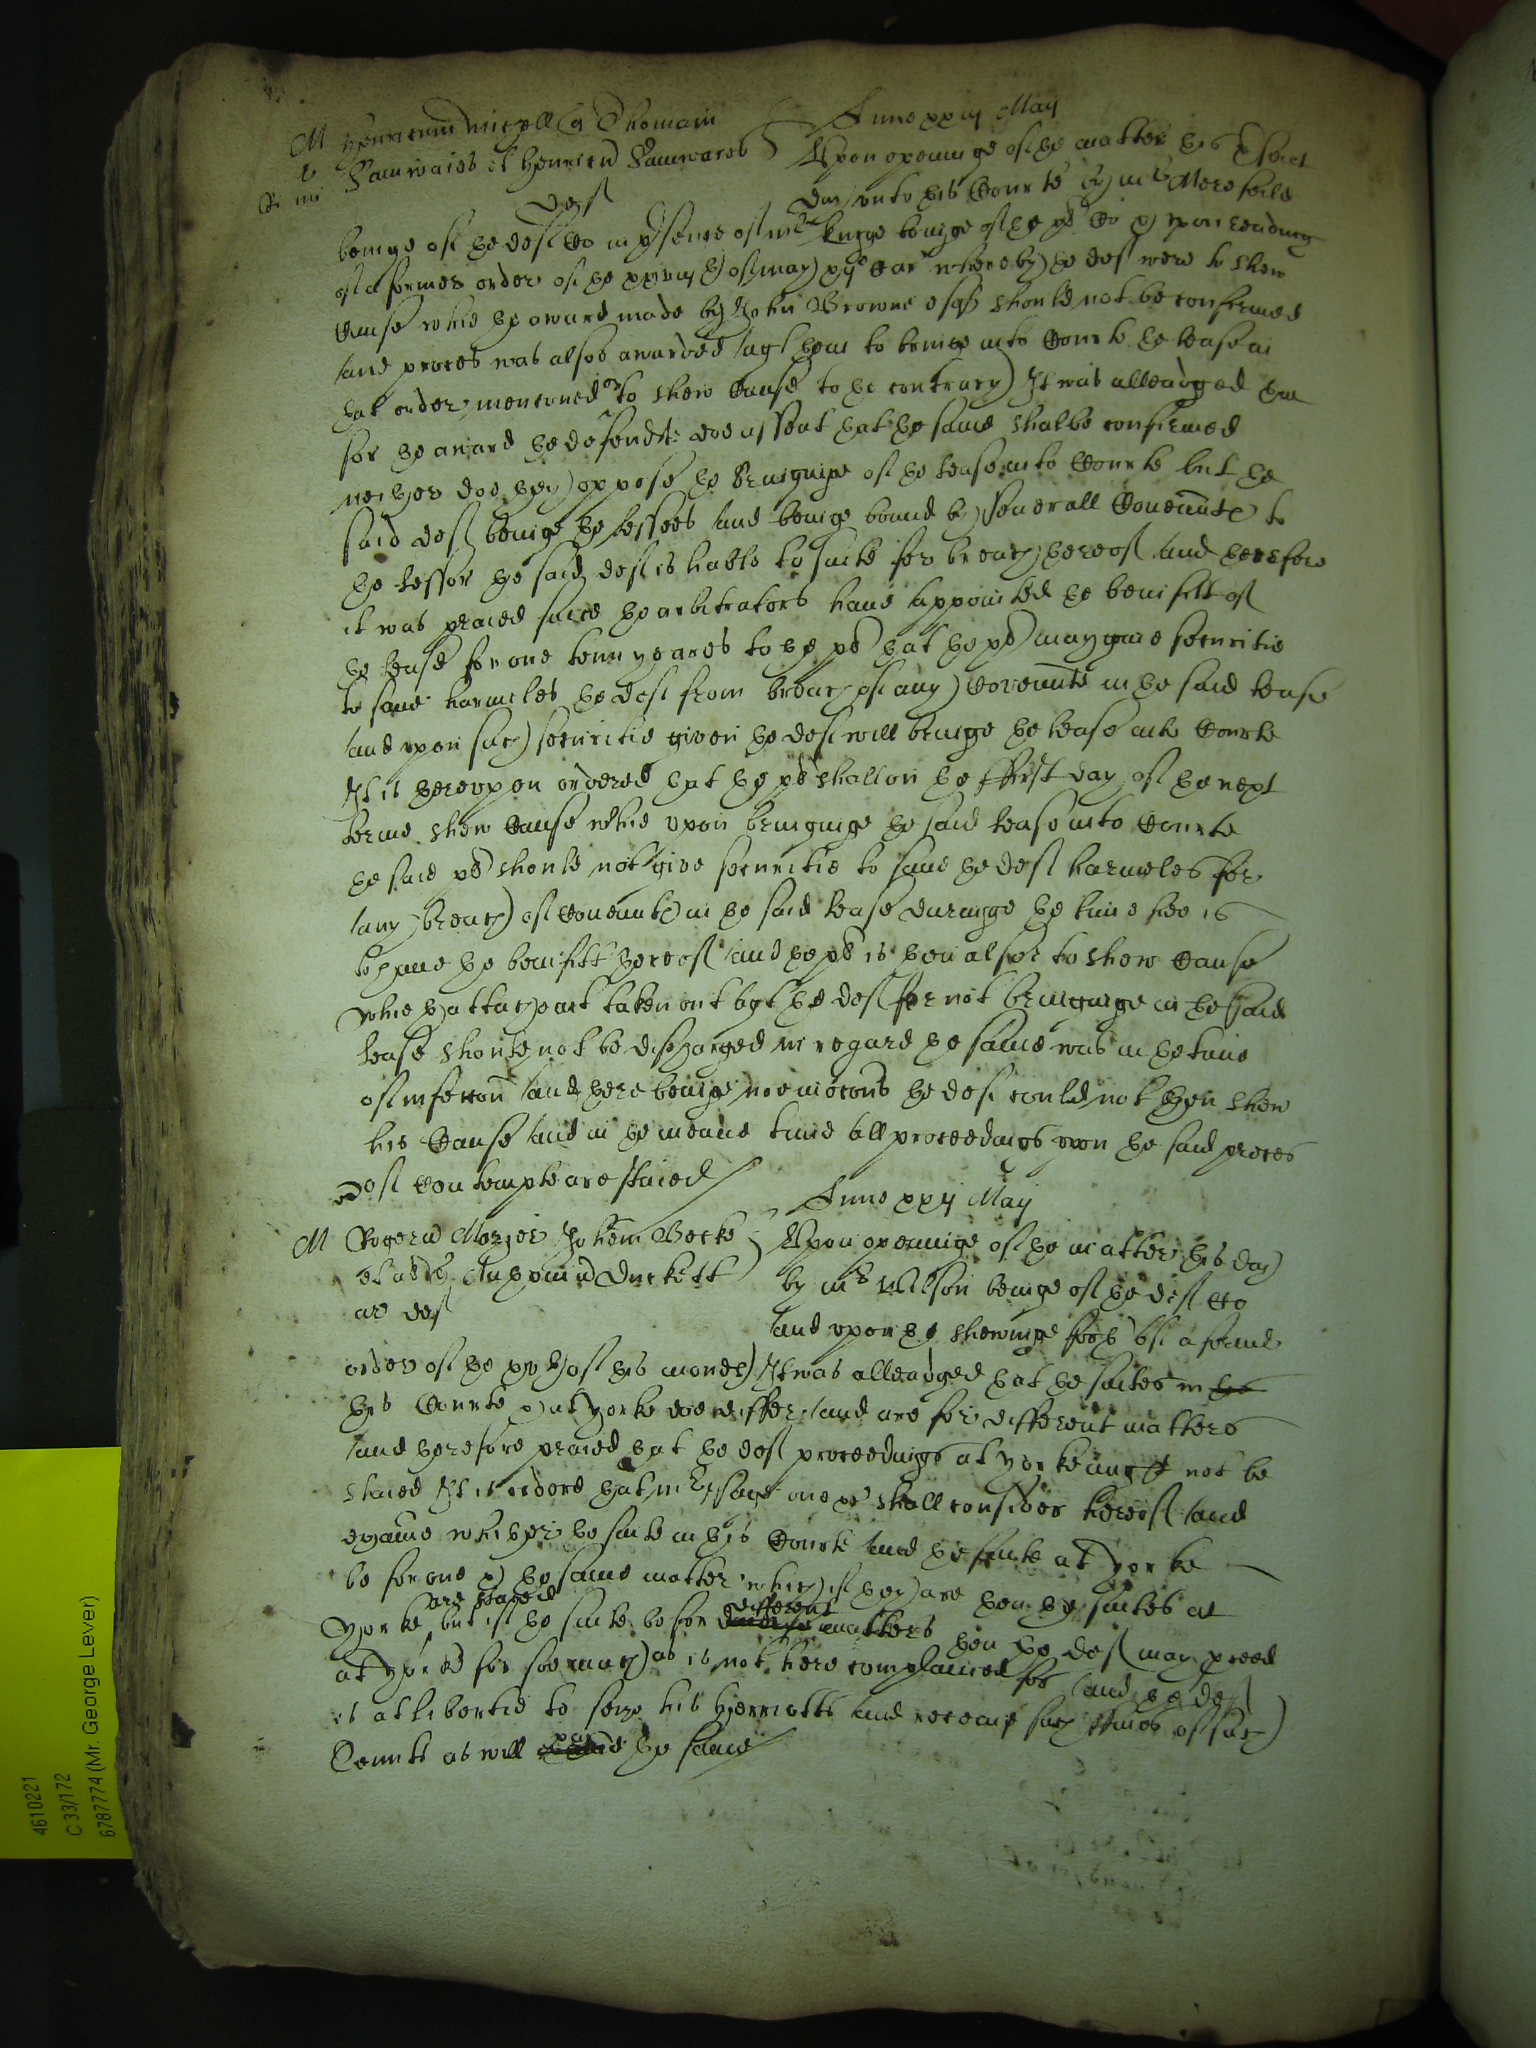 M Henricum Mitchell q Thomam
Samwaies et Henricu Samwaies
def
Anno xxiij Maij
Upon openinge of the matter this psent
day unto this Courte by mr Merefeild
beinge of the def Co in psence of mr Kinge beinge of the pl Co & upon readinge
of a former order of the xxviij th of may xij o Car whereby the def were to shew
Cause whie the award made by John Browne esqr should not be confirmed
and proces was alsoe awarded agt them to bringe into Courte the lease in
that order mencioned or to shew Cause to the contrary It was alleadged that
for the award the defendts doe assent that the same shalbe confirmed
neither doe they oppose the bringinge of the lease into Courte but the
said def beinge the lessees and beinge bound by severall Covennts to
the lessor the said def is liable to suite for breach thereof and therefore
it was praied since the arbitrators have appointed the benifitt of
the lease for one tenn yeares to the pl that the pl may give securitie
to save harmeles the def from breach of any Covennts in the said lease
and upon such securitie given the def will bringe the lease into Courte
It is thereupon ordered that the pl shall on the ffirst day of the next
terme shew Cause whie upon bringinge the said lease into Courte
the said pl should not give securitie to save the def harmeles for
any breach of Covennts in the said lease duringe the time hee is
to have the benifitt thereof and the pl is then alsoe to shew Cause
whie thattachmt taken out agt the def for not bringinge in the said
lease should not be discharged in regard the same was in the time
of infeccon and there beinge noe mocons the def could not then shew
his Cause and in the meane time all proceedings upon the said proces
of Contempte are staied
Anno xxij Maij
M Rogeru Mercer Johem Becke
et al quer Anthoniu Duckett
ar def
Upon openinge of the matter this day
by mr Wilson beinge of the def Co
and upon the shewinge forth of a formr
order of the xvth of this moneth It was alleadged that the suites in
this Courte & at Yorke doe differ and are for different matters
and therefore praied that the def proceedings at yorke might not be
staied It is ordered that mr Page one &c shall consider thereof and
examine whether the suite in this Courte and the suite at Yorke
be for one & the same matter which if they are then the suites at
Yorke are staied but if the suite be for different matters then the def may pceed
at Yorke for soe much as is not here complained for and the def
is at libertie to seize his Herriotts and receive such ffines of such
Tennts as will pay the same
4610221
C 33/172
6787774 (Mr. George Lever)